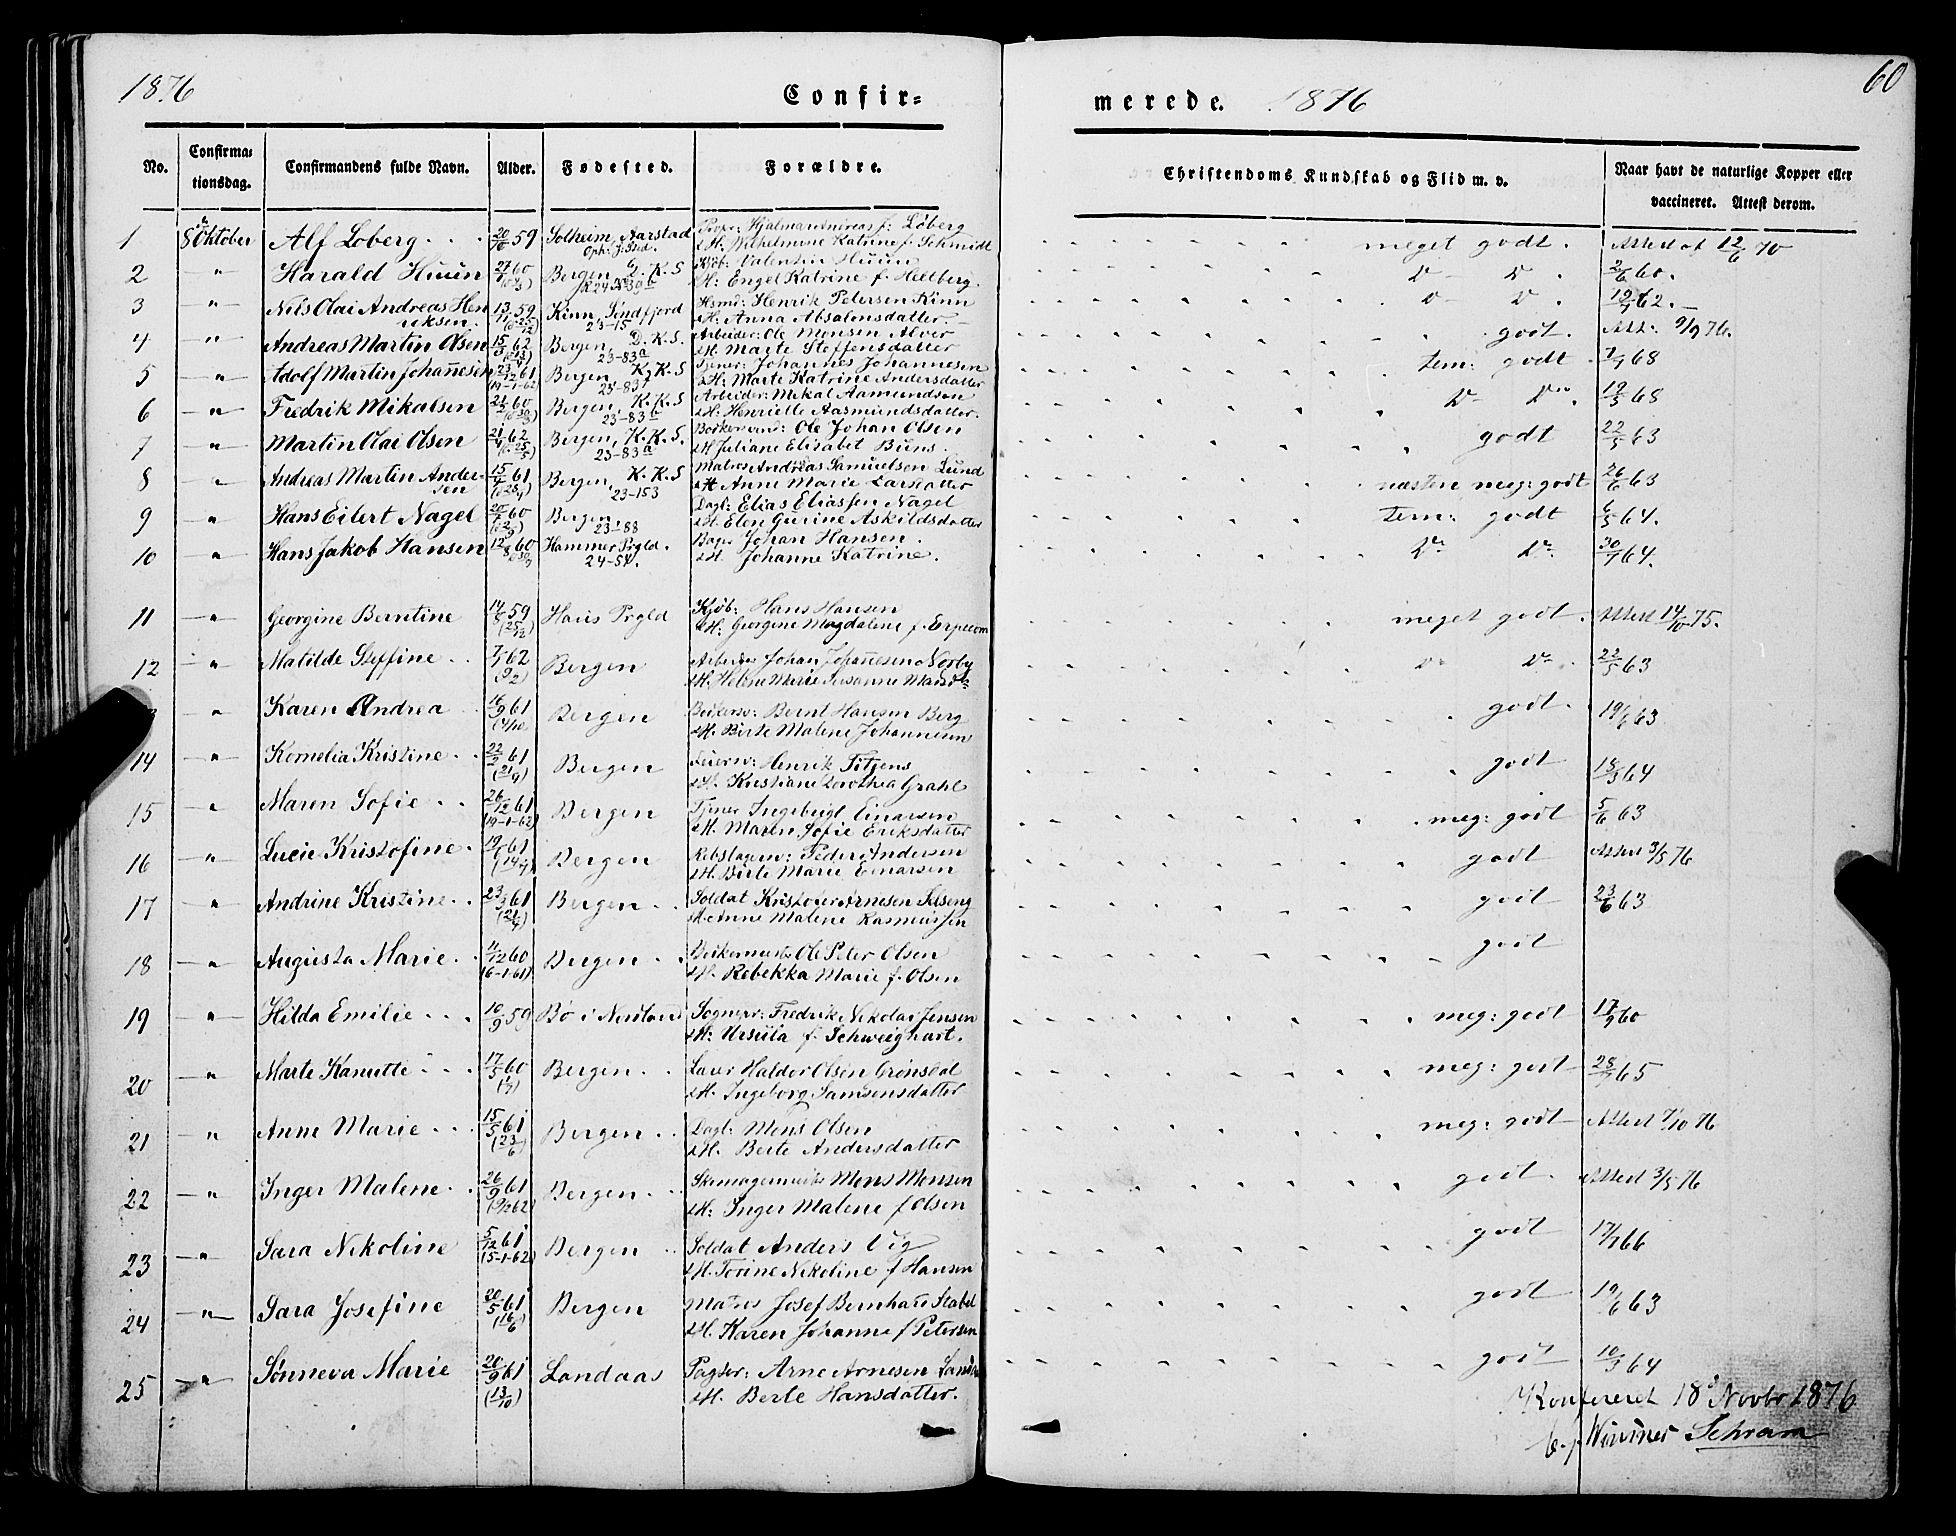 1876
Confir=
merede. 1876
60
No.
Confirma=
tionsdag.
Confirmandens fulde Navn.
Alder.
Fødested.
Forældre.
Christendoms Kundskab og Flid m. v.
Naar havt de naturlige Kopper eller
vaccineret. Attest derom.
1 8 Oktober Alf Loberg 20/10 59 Solheim, Aarstad Hjalmar Andreas f: Løberg
&H. Wilhelmine Katrine f. Schmidt meget godt. Attest af 12/6 70
2 " Harald Huun 27/7 60 Bergen K. S Kjøb: Valentin Huun
&H: Engel Katrine f. Hellberg. D- D. 2/6 60.
3 " Nils Olai Andreas Hen
riksen. 13/11 59 Kinn, Søndfjord 23-15 Hsmd: Henrik Petersen Kinn
&H: Anna Absalonsdatter. D- D. 12/7 62.
4 " Andreas Martin Olsen 15/3 62 Bergen, D. K. S. 23-83a Arbeider: Ole Monsen Alver
&H. Marte Steffensdatter godt. Att: 9/9 76.
5 " Adolf Martin Johannesen 23/12 61 (19-1-62) Bergen, K. K. S 23-83 Tjener: Johannes Johannesen
&H: Marte Katrine Andersdatter tem: godt 7/7 68
6 " Fredrik Mikalsen 24/2 60 Bergen, K. K. S 23-83b Arbeider: Mikal Aamundsen
&H: Henriette Aasmundsdatter. D- Do. 12/5 68
7 " Martin Olai Olsen 21/4 62 Bergen, K. K. S. 23-83a Ole Johan Olsen
&H Juliane Elisabet Buens. godt 22/5 63
8 " Andreas Martin Ander-
sen 15/4 61 Bergen, K. K. S 23-153 Matros Andreas Samuelsen Lund
&H Anne Marie Larsdatter næsten meg: godt 26/6 63
9 " Hans Eilert Nagel 20/7 60 Bergen, 23-88 Dagl: Elias Eliassen Nagel
&H. Elen Gurine Askildsdatter tem: godt 6/5 64.
10 " Hans Jakob Hansen 12/8 60 Hammer Prgld. 24-54. Johan Hansen.
&H. Johanne Katrine. Do Do. 30/7 64.
11 " Georgine Berntine 14/5 59 (25/12) Haus Prgld Kjøb: Hans Hansen
&H: Georgine Magdalene f. Erpecom meget godt. Attest 14/10 75.
12 " Matilde Steffine 7/1 62 (9/2) Bergen Arbeider Johan Johannesen Norby
&H. Helene Marie Susanne D- Do 22/5 63
" Karen Andrea 16/9 61 Bergen Bernt Hansen Berg
&H. Birte Malene Johannesen godt. 19/6 63
14 " Kornelia Kristine 22/2 61 (21/9) Bergen Henrik Titjens
&H. Kristiane Dorothea Grahl godt 18/3 64
15 " Maren Sofie 26/12 61 (19-1-62) Bergen Tjener Ingebrigt Einarsen
&H. Maren Sofie Eriksdatter meg: godt 5/6 63
16 " Lucie Kristofine 19/6 61 (14/7) Bergen Rebslagersv: Peder Andersen
&H. Birte Marie Einarsen godt Attest 3/5 76
17 " Andrine Kristine 23/3 61 (21/4) Bergen Soldat Kristofer Arnesen Selseng
&H. Anne Malene Rasmussen godt 23/6 63
18 " Augusta Marie 11/12 60 (6-1-61) Bergen Ole Peter Olsen
&H. Rebekka Marie f. Olsen godt
19 " Hilda Emilie 10/9 59 Bø i Nordland Sognepr: Fredrik Nikolai Jensen
&H: Ursula f. Schweighart. meg: godt 17/9 60
20 " Marte Kanutte 17/5 60 Bergen Haldor Olsen Grønsdal
&H. Ingeborg Samsonsdatter meg: godt 28/7 65
21 " Anne Marie 15/5 61 (23/6) Bergen Dagl: Mons Olsen
&H. Berte Andersdatter meg: godt Attest 7/10 76
22 " Inger Malene 26/9 61 (9/2 62) Bergen Skomagermester Mons Monsen
&H: Inger Malene f Olsen godt. Attest 3/5 76
23 " Sara Nikoline 5/12 61 (15-1-62) Bergen Soldat Anders Vig
&H. Torine Nikoline f Hansen godt 17/7 66
24 " Sara Josefine 20/5 61 (16/6) Bergen Matros Josef Bernhard Stabel
&H. Karen Johanne f Petersen godt 19/6 63
25 " Sønneva Marie 20/9 61 (13/10) Landaas Pagter: Arne Arnesen
&H. Berte Hansdatter. godt 10/3 64
Konfereret 18 Novbr 1876
Schram